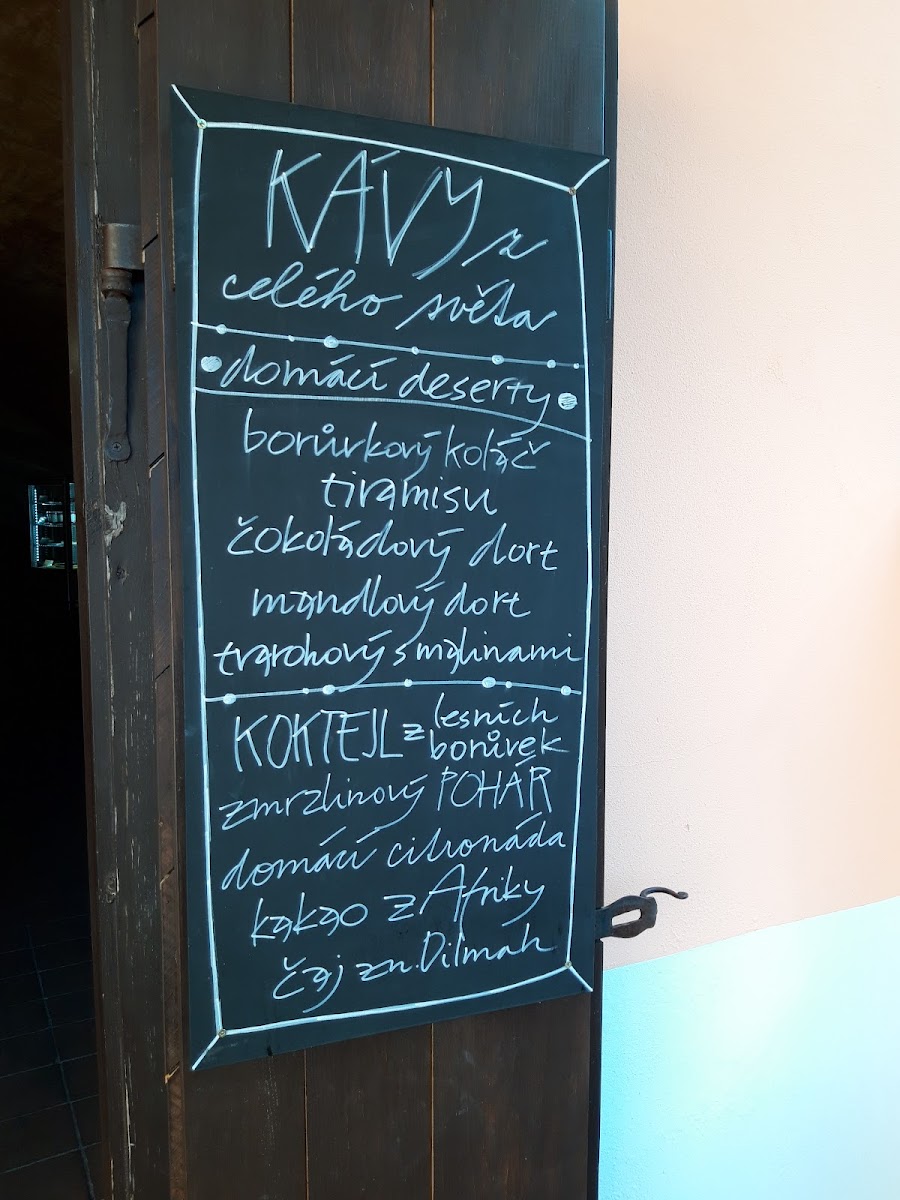 KÁVY z
celého světa
domácí deserty
borůvkový koláč
tiramisu
čokoládový dort
mandlový dort
tvarohový s malinami
KOKTEJL z lesních
borůvek
zmrzlinový POHÁR
domácí citronáda
kakao z Afriky
čaj zn. Dilmah